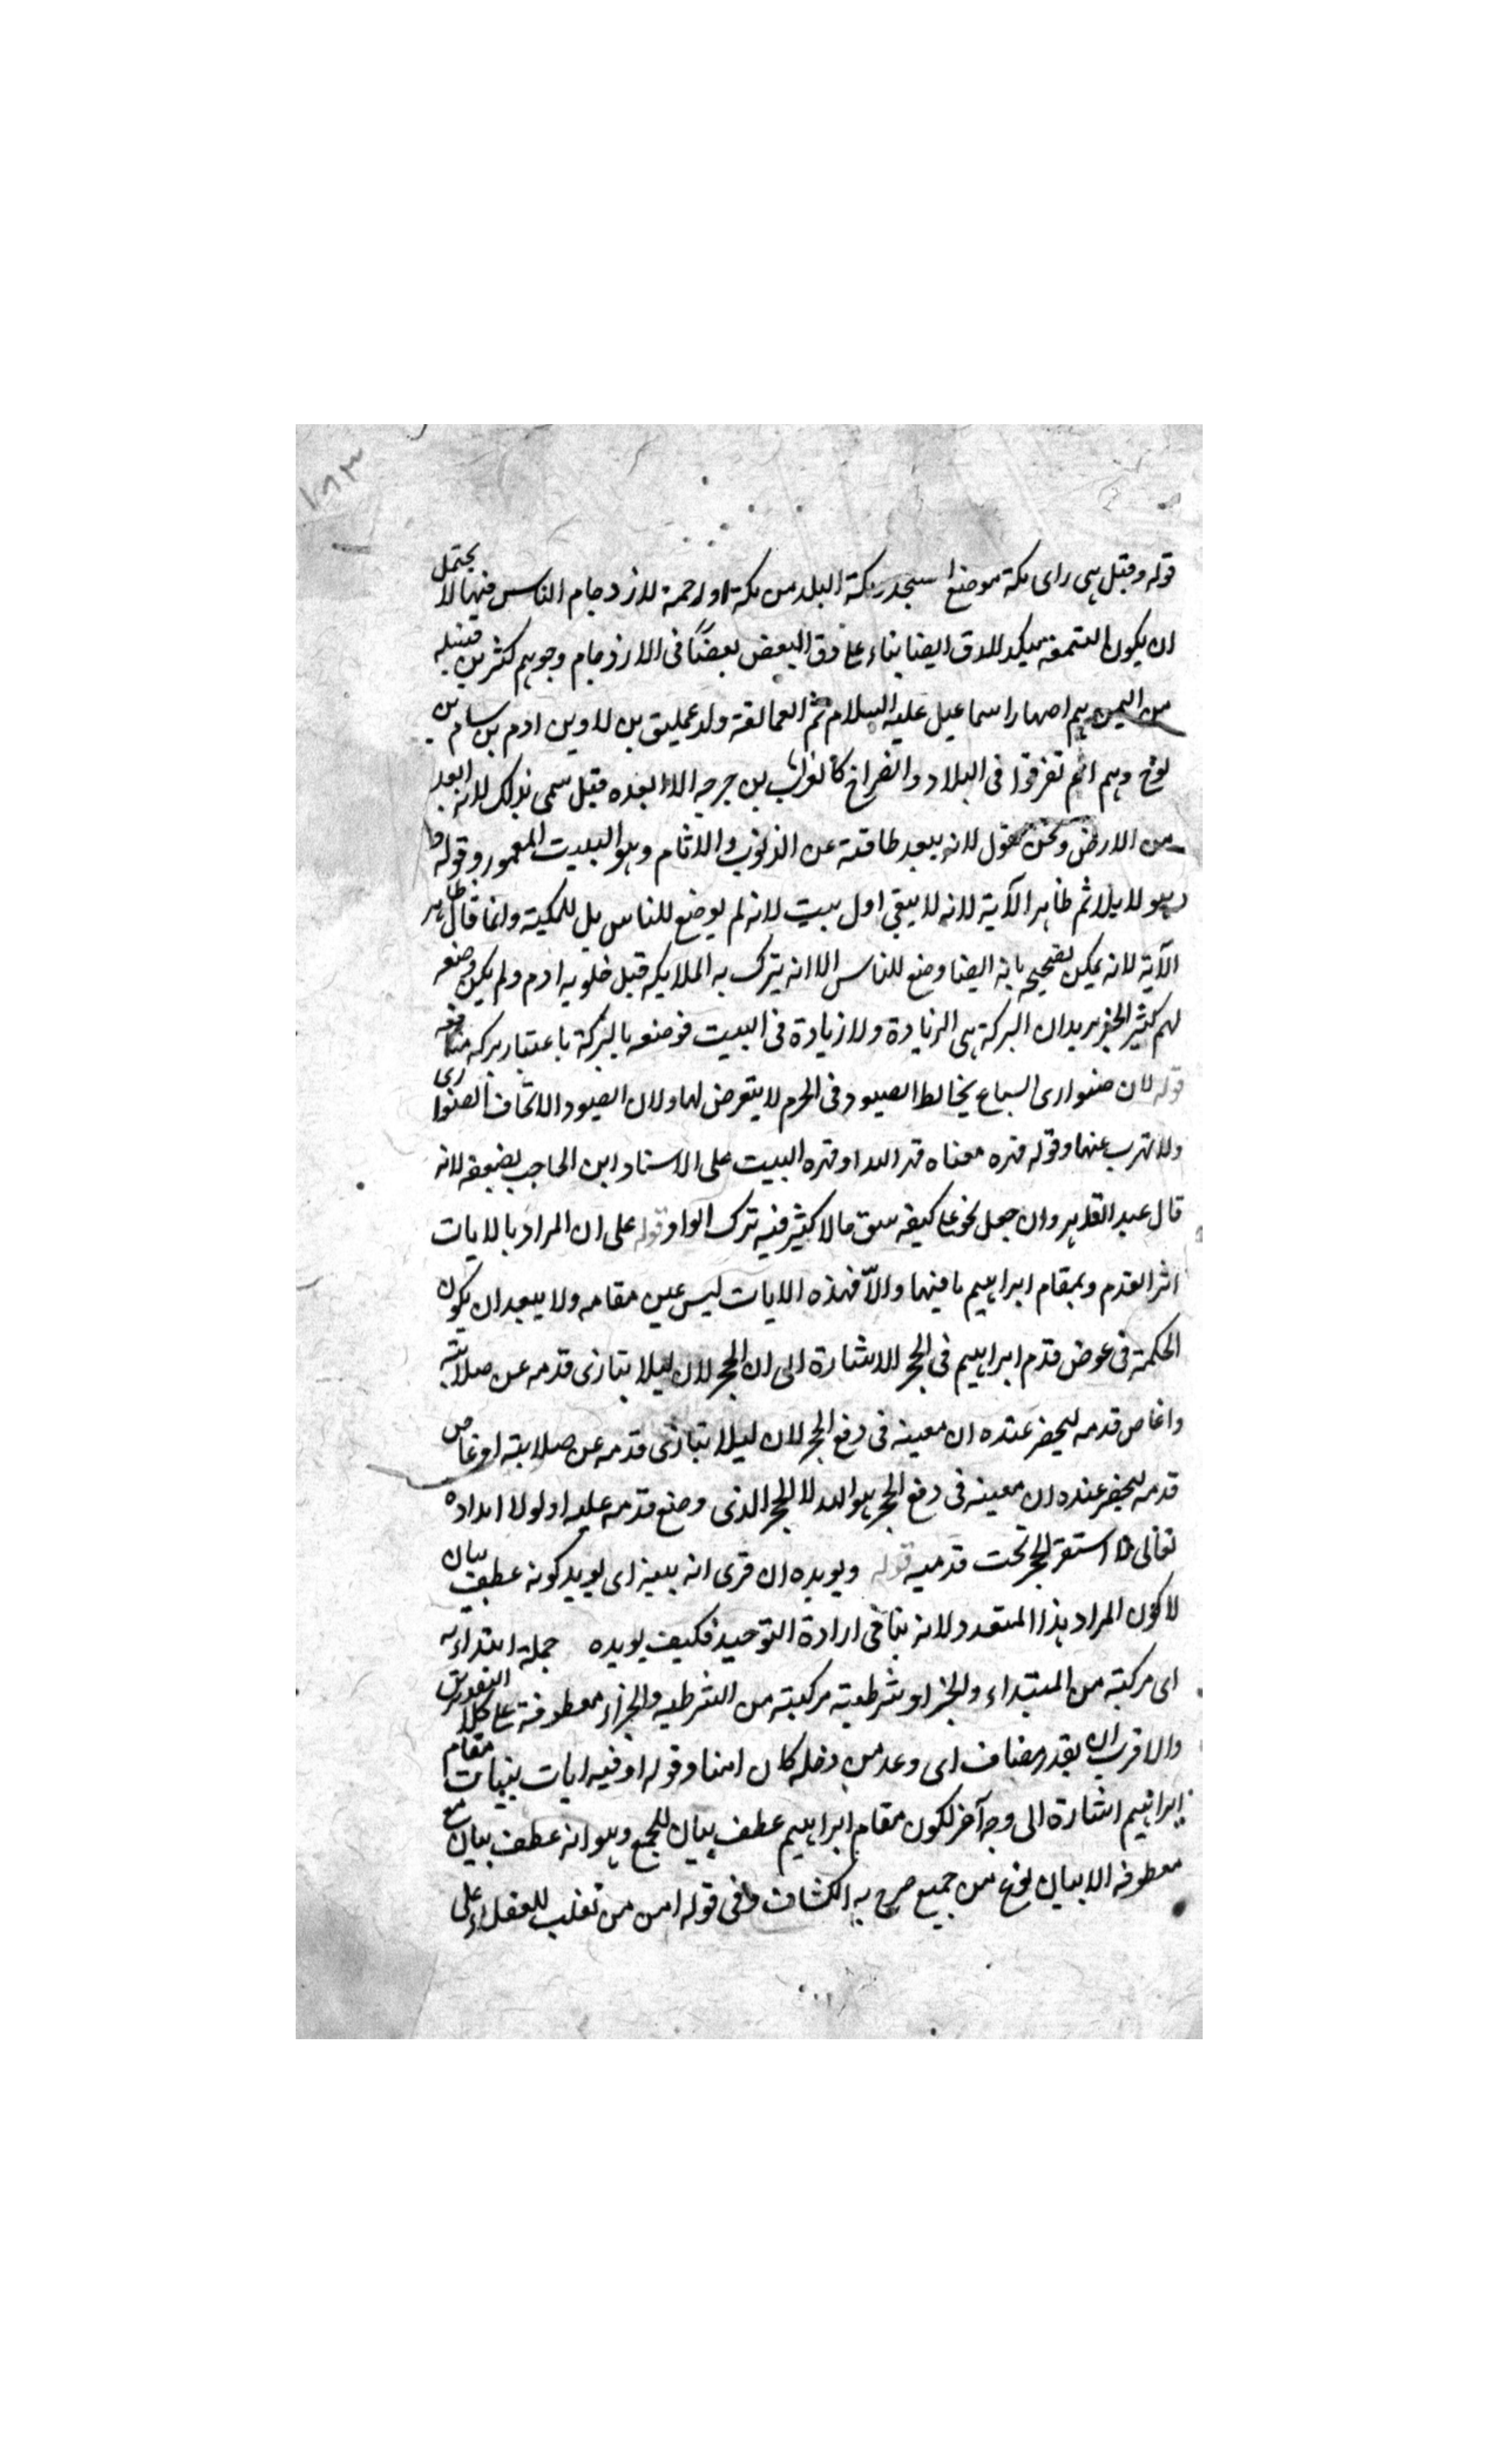 ١٨٣
قوله وقيل هي راى بكة موضع المسجد وبكة البلد من بكة اذا زحمه لازدحام الناس فيها لا يحتمل
ان يكون التسمية ببكة للدق ايضا بناء على دق البعض بعضًا في الازدحام وجرهم كثر بن قبيلة
من اليمن هم اصهار اسماعيل عليه السلام ثم العمالقة ولد عمليق بن لاوين ادم بن سام بن
نوح وهم امم تفرقوا في البلاد والضراح كالغراب بن جرحه الا ابعده قيل سمى بذلك لانه ابعد
من الارض ونحن نقول لانه يبعد طاقته عن الذنوب والاثام وهو البيت المعمور وقوله
وهو لا يلائم ظاهر الآية لانه لا يبقى اول بيت لانه لم يوضع للناس بل للملكية وانما قال ظاهر
الآية لانه يمكن تصحيحه بانه ايضا وضع للناس الا انه يترك به الملايكه قبل خلويه ادم ولم يكن وضعه
لهم كثير الخير يريدان البركة هي الزيادة ولا زيادة في البيت فوضعه بالبركة باعتبار بركه منافعه
قوله لان ضوارى السباع يخالط الصيود في الحرم لا يتعرض لها ولان الصيود لا تخاف الضوارى
ولا تهرب عنها وقوله قهره معناه قهر الله او قهره البيت على الاسناد ابن الحاجب يضعفه لانه
قال عبد القاهر وان جعل نحو على كيفه سق مالا كثير فيه ترك الواو قوله على ان المراد بالايات
اثر القدم وبمقام ابراهيم ما فيها والاّ فهذه الايات ليس عين مقامه ولا يبعد ان يكون
الحكمة في غوض قدم ابراهيم في الحجر الاشارة الى ان الحجر لان ليلا يتاذى قدمه عن صلابته
واغاص قدمه ليحضر عنده ان معينه في رفع الحجر لان ليلا يتاذى قدمه عن صلابته او غاص
قدمه ليحضر عنده ان معينه في رفع الحجر هو الله لا الحجر الذى وضع قدمه عليه او لولا امداده
تعالى لما استقر الحجر تحت قدميه قوله ويويده ان قرى انه بينة اى يويد كونه عطف بيان
لا كون المراد بهذا المتعدد لانه ينافى ارادة التوحيد فكيف يويده جملة ابتدائيه
اى مركبة من المبتداء والخبر او شرطية مركبة من الشرطيه والجزاء معطوفة على كلا التقديرين
والاقرب ان يقدر مضاف اى وعد من دخله كان امنا وقوله او فيه ايات بينات مقام
ابراهيم اشارة الى وجه آخر لكون مقام ابراهيم عطف بيان للجمع وهو انه عطف بيان مع
معطوفه الا بيان نوع من جميع صرح به الكشاف وفى قوله امن من تغليب للعقلاء على